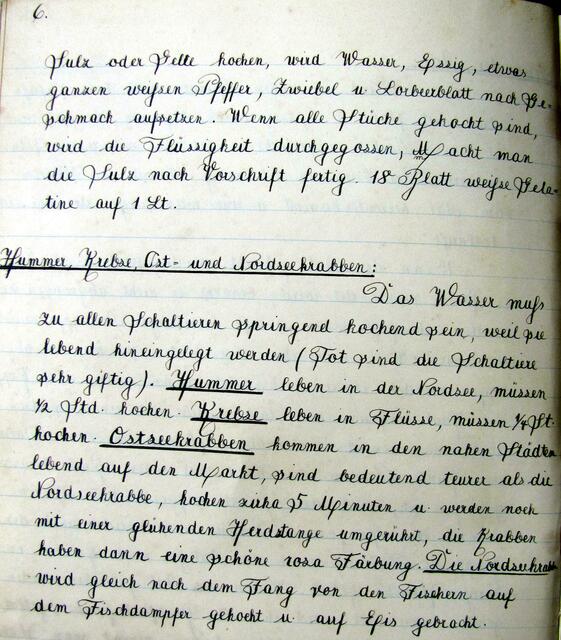 6.
Sulz oder Gelle kochen, wird Wasser, Essig, etwas
ganzen weißen Pfeffer, Zwiebel u. Lorbeerblatt nach Ge-
schmack aufsetzen. Wenn alle Stücke gekocht sind,
wird die Flüssigkeit durchgegossen, Macht man
die Sulz nach Vorschrift fertig. 18 Blatt weiße Gela-
tine auf 1 Lt.
Hummer, Krebse, Ost- und Nordseekrabben:
Das Wasser muß
zu allen Schaltieren springend kochend sein, weil sie
lebend hineingelegt werden (Tot sind die Schaltiere
sehr giftig). Hummer leben in der Nordsee, müssen
1/2 Std. kochen. Krebse leben in Flüsse, müssen 1/4 St.
kochen. Ostseekrabben kommen in den nahen Städten
lebend auf den Markt, sind bedeutend teurer als die
Nordseekrabbe, kochen zirka 5 Minuten u. werden noch
mit einer glühenden Herdstange umgerührt, die Krabben
haben dann eine schöne rosa Färbung. Die Nordseekrabbe
wird gleich nach dem Fang von den Fischern auf
dem Fischdampfer gekocht u. auf Eis gebracht.